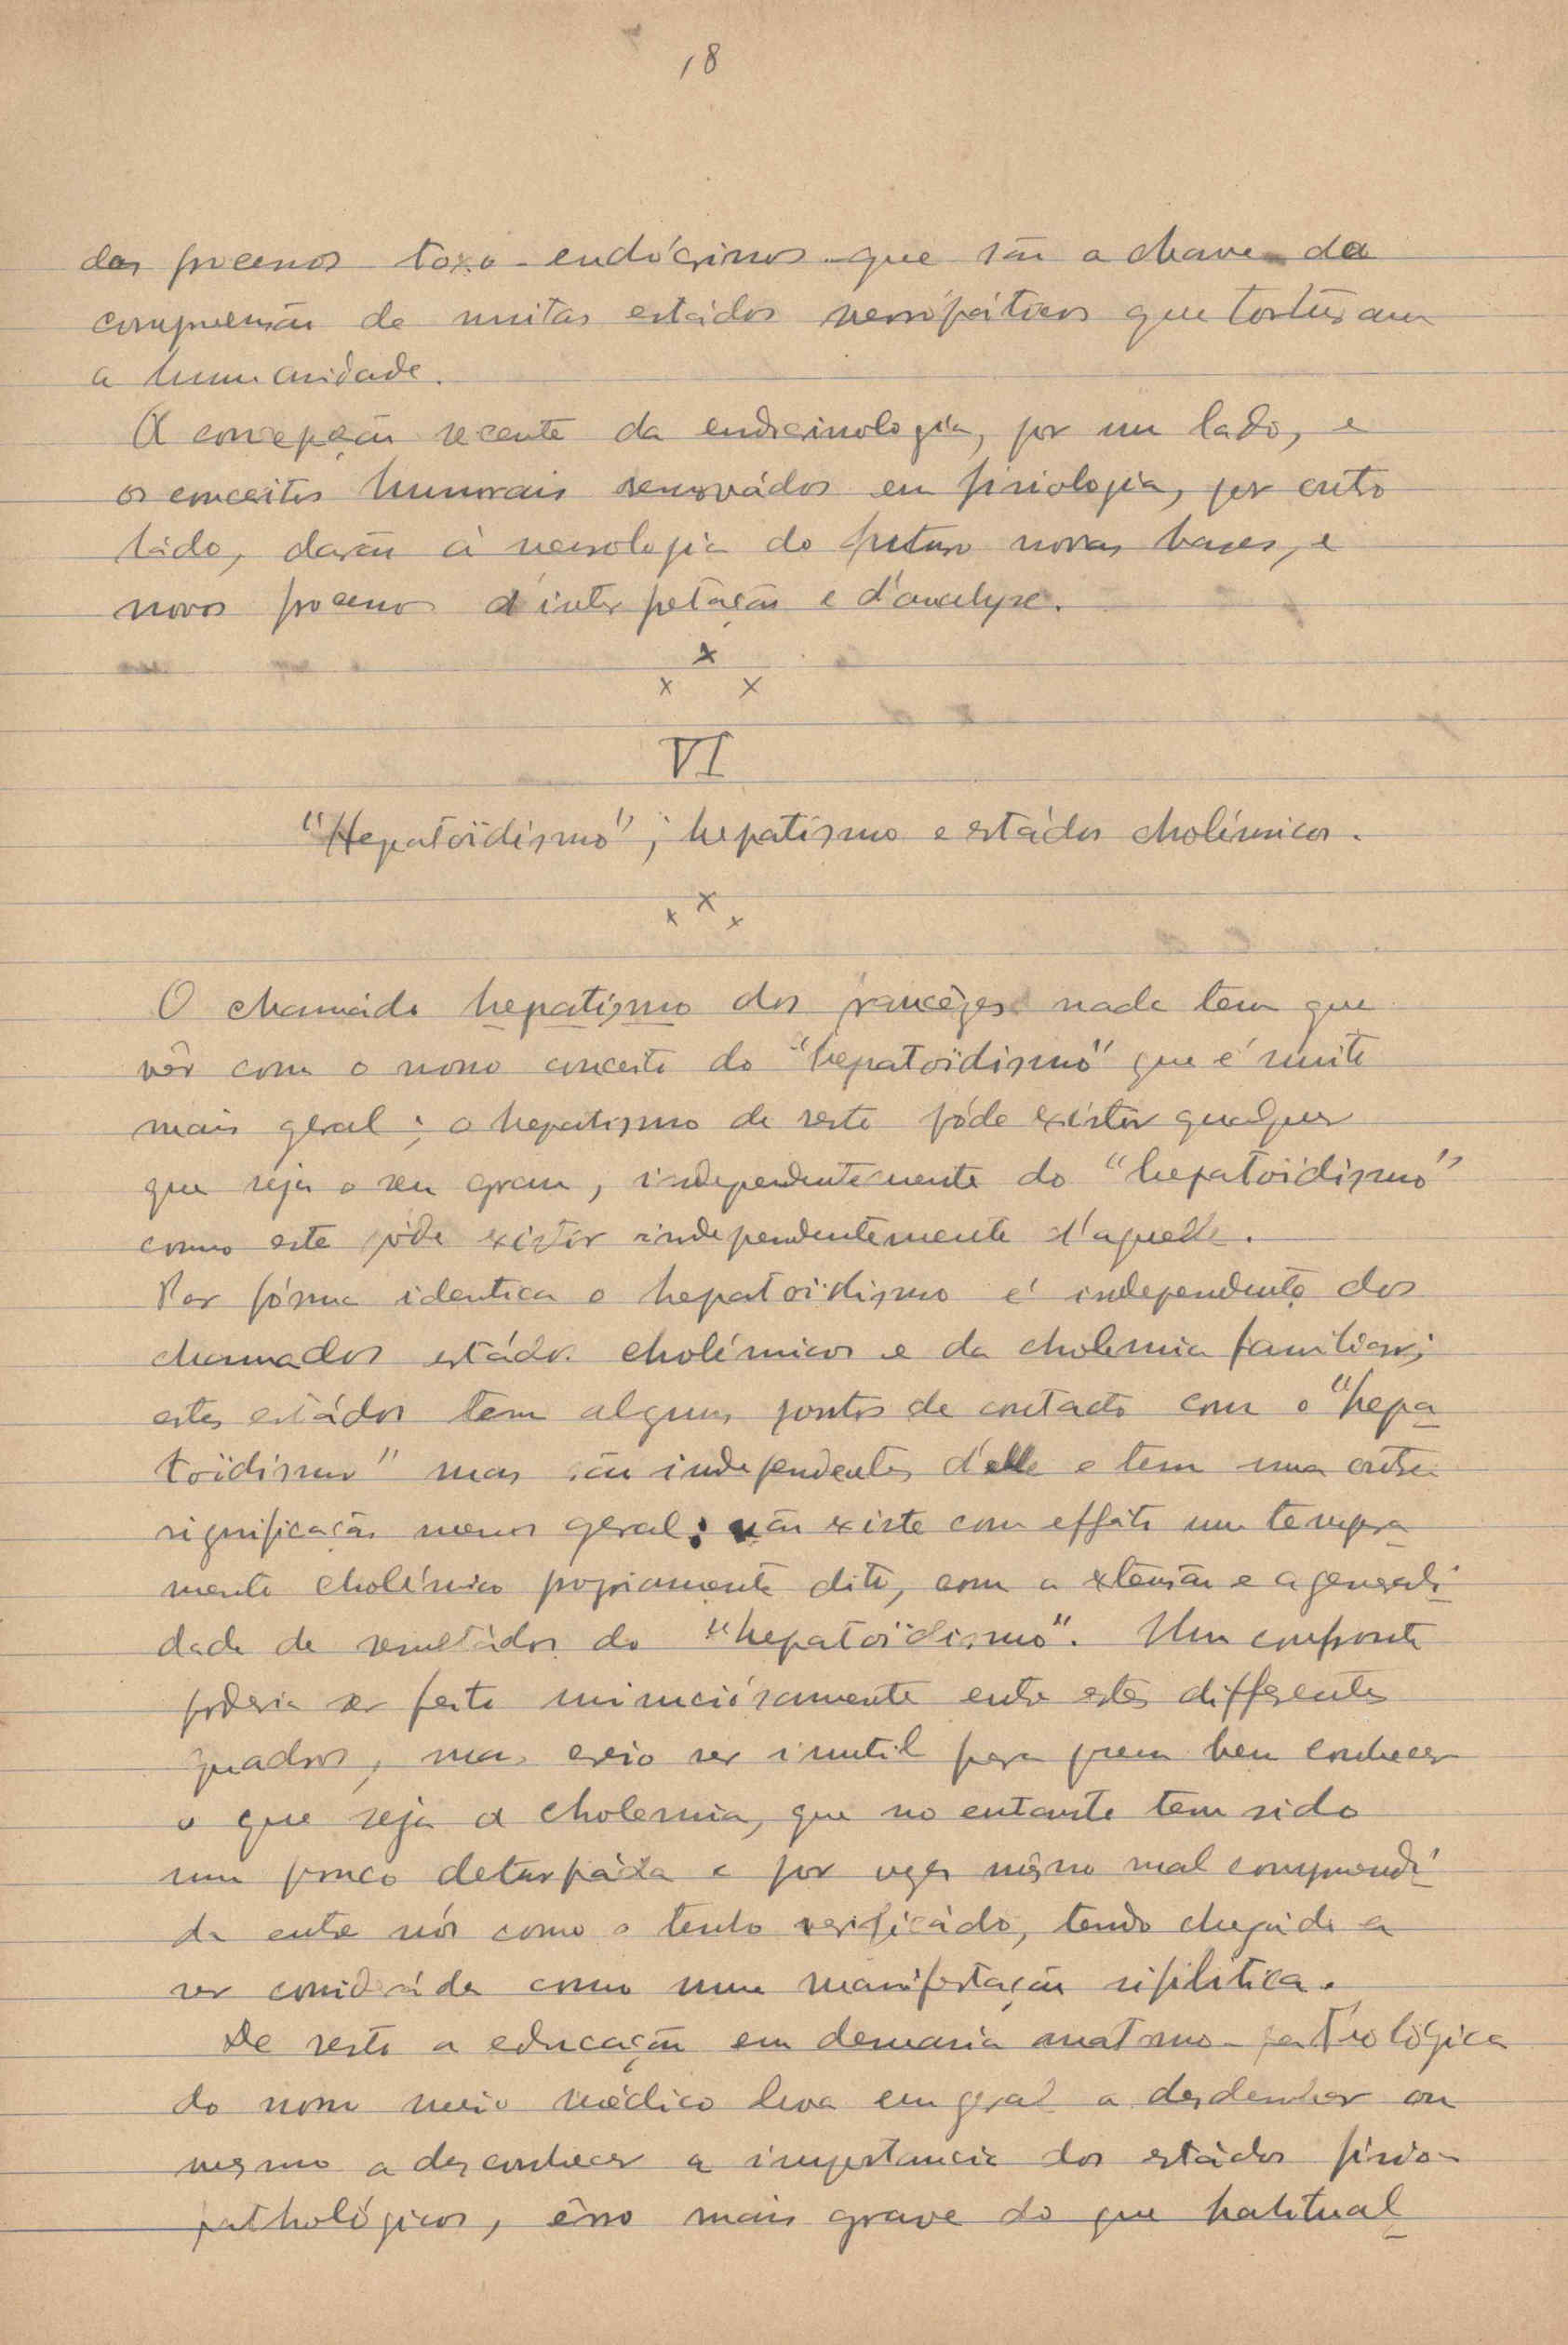 18
dos processos toxo-endócrinos que são a chave da
compreensão de muitos estádos nevropáticos que torturam
a humanidade.
A concepção recente da endocrinologia, por um lado, e
os conceitos humorais renovádos em fisiologia, por outro
ládo, darão á nevrologia do futuro novas bases, e
novos processos d'interpretação e d'analyse.
x
x x
VI
"Hepatoïdismo", hepatismo e estádos cholémicos.
x
x x
O chamádo hepatismo dos francêzes nada tem que
vêr com o nosso conceito do "hepatoïdismo" que é muito
mais geral; o hepatismo de resto póde existir qualquer
que seja o seu grau, independentemente do "hepatoïdismo"
como este póde existir independentemente d'aquelle.
Por fórma identica o hepatoïdismo é independente dos
chamados estádos cholémicos e da cholemia familiar;
estes estádos tem alguns pontos de contacto com o "hepa
toïdismo" mas são independentes d'elle e tem uma outra
significação menos geral; não existe com effeito um tempra
mento cholémico propriamente dito, com a extensão e a generali
dade de resultádos do "hepatoïdismo". Um confronto
poderia ser feito minuciósamente entre estes differentes
quadros, mas creio ser inutil para quem bem conhecer
o que seja a cholemia, que no entanto tem sido
um pouco deturpáda e por vezes mêsmo mal comprendi
da entre nós como o tenho verificádo, tendo chegádo a
ser consideráda como uma manifestação sifilitica.
De resto a educação em demasia anatomo-patholögica
do nosso meio médico leva em geral a desdenhar ou
mesmo a desconhecer a importancia dos estádos fisio-
pathológicos, êrro mais grave do que habitual